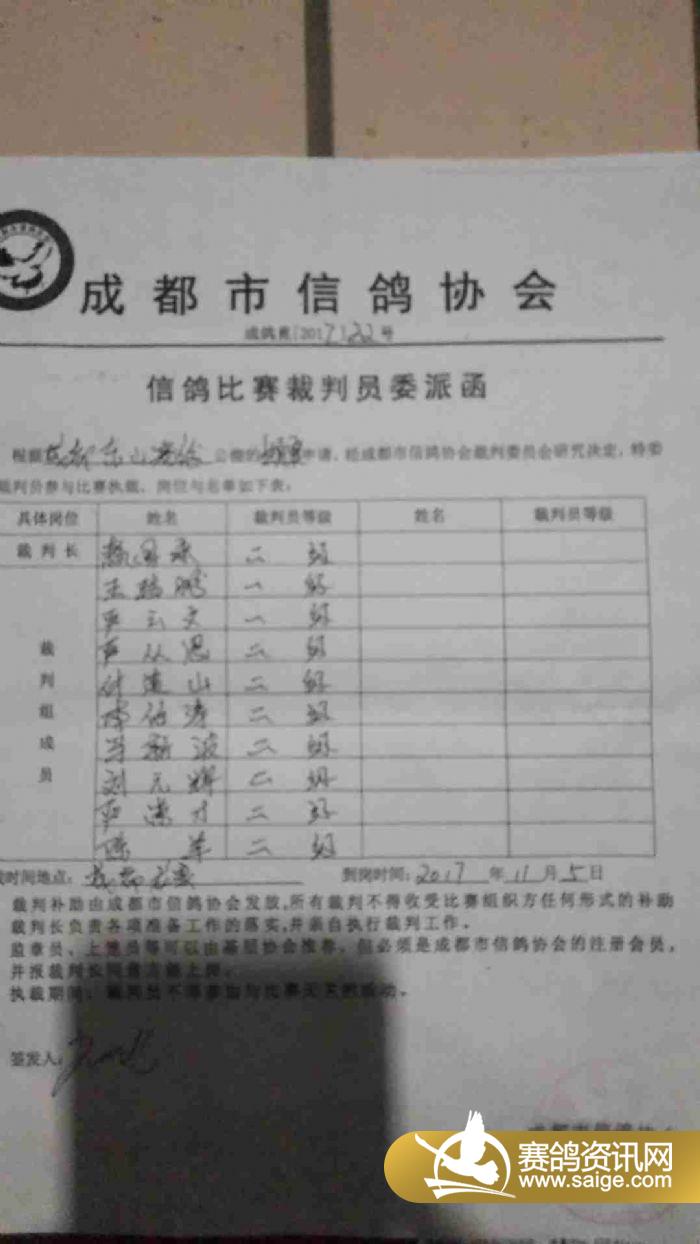 成都市信鸽协会
成鸽裁[2017]22号
信鸽比赛裁判员委派函
根据成都东山赛鸽公棚的申请、经成都市信鸽协会裁判委员会研究决定，特委
裁判员参与比赛执裁、岗位与名单如下表：
具体岗位 姓名 裁判员等级 姓名 裁判员等级
裁判长 二级
王 一级
严云文 一级
严从 二级
付建山 二级
二级
二级
刘元辉 二级
严 二级
陈军 二级
裁判组成员
时间地点： 到岗时间：2017年11月5日
裁判补助由成都市信鸽协会发放，所有裁判不得收受比赛组织方任何形式的补助
裁判长负责各项准备工作的落实，并亲自执行裁判工作。
监章员、上笼员等可以由基层协会推荐。但必须是成都市信鸽协会的注册会员，
并报裁判长同意方能上岗。
执裁期间：裁判员不得参加与比赛无关的活动。
签发人：
成都市信鸽协会
赛鸽资讯网
www.saige.com